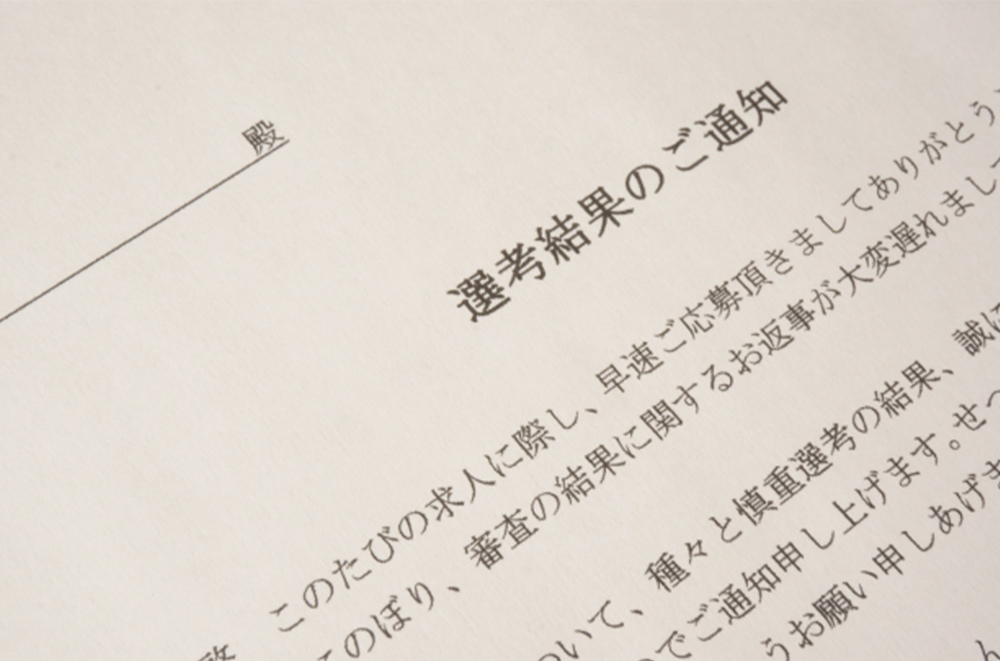 殿
選考結果のご通知
このたびの求人に際し、早速ご応募頂きましてありがとう
このぼり、審査の結果に関するお返事が大変遅れまして
ついて、種々と慎重選考の結果、誠に
のでご通知申し上げます。せ
うお願い申しあげま